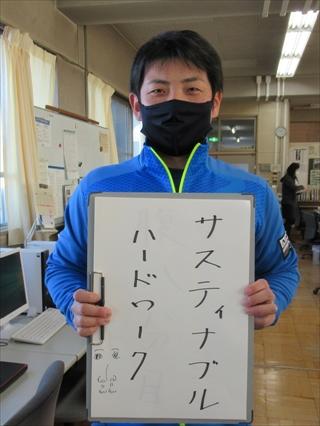 サスティナブル
ハードワーク